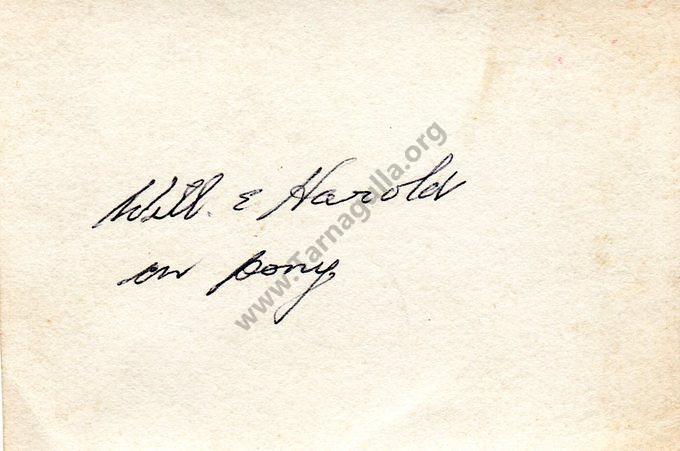 Will. & Harold
on pony
www.Tarnagulla.org